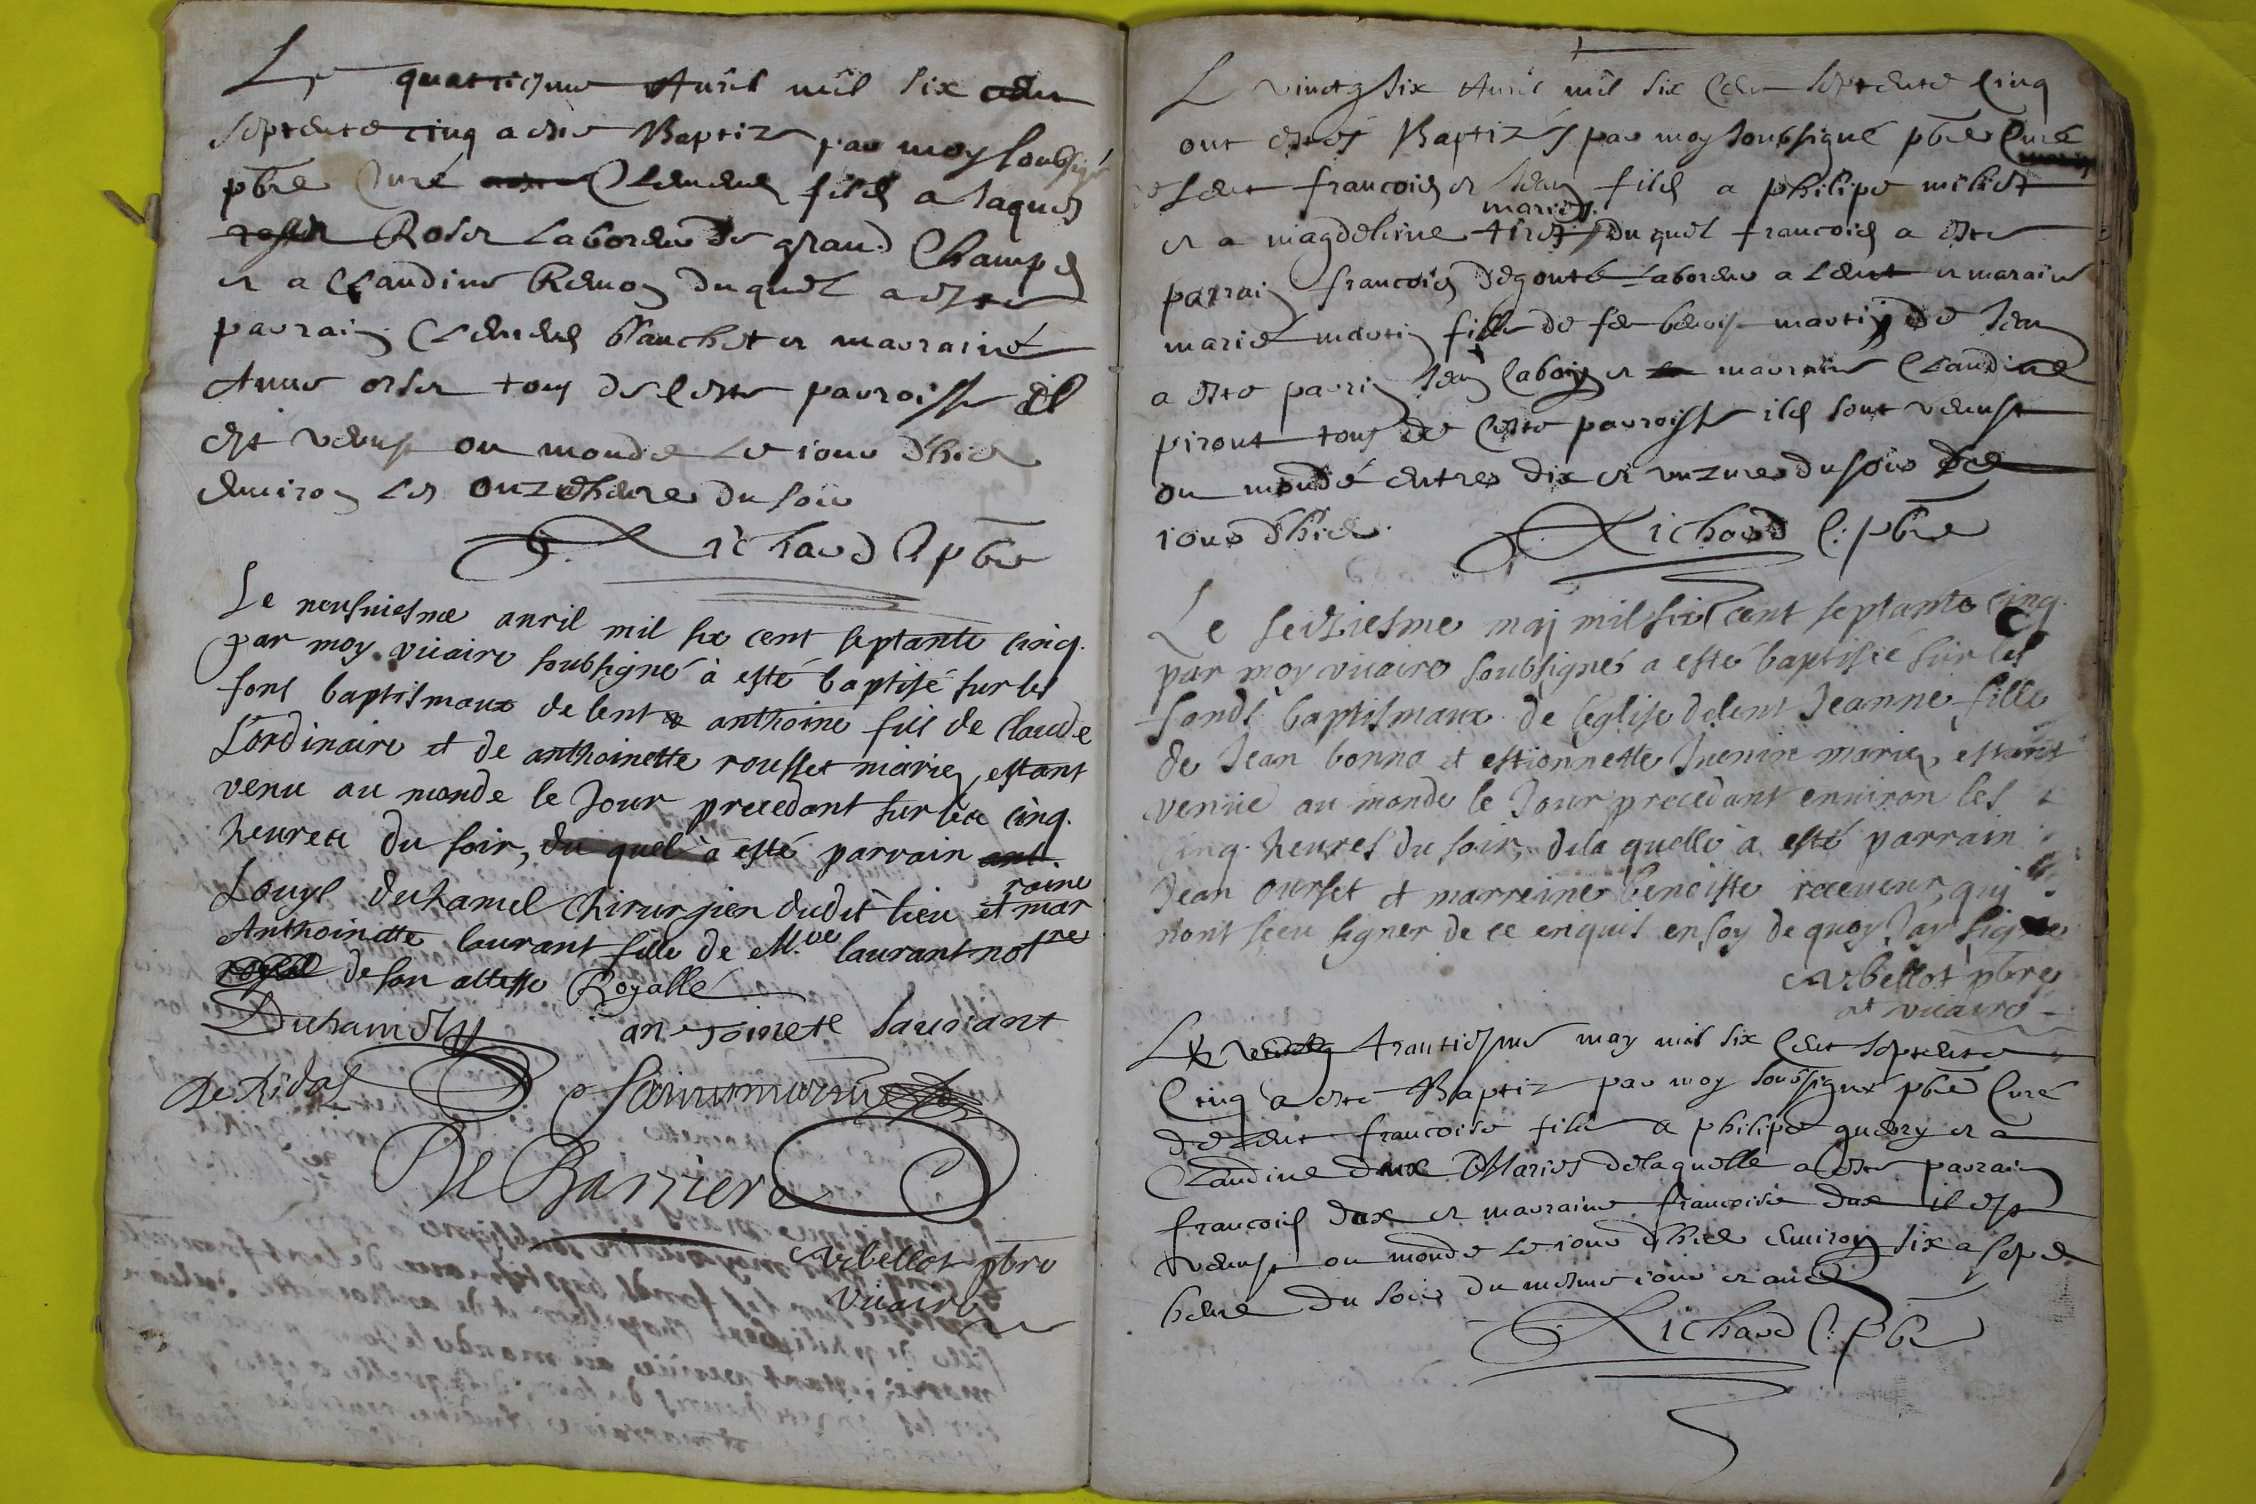 Le quatriesme Auril mil six cent
septente cinq a este Baptize par moy soubsigné
pbre Curé Clement filz a Jaques
Roser Laboreur de grand Champs
et a Claudine Remon duquel a este
parrain Clement blanchet et marraine
Anne orser tous de ceste parroisse il
est venust ou monde le iour d'hier
enuiron les onze heure du soir
Richard C pbre
Le neufuiesme auril mil six cent septante cinq.
par moy vicaire soubsigné à esté baptisé sur les
fons baptismaux de lent anthoine fils de claude
Lordinaire et de anthoinette rousset mariez, estant
venu au monde le Jour precedant sur les cinq.
heures du soir, du quel à esté parrain
Louys duhamel chirurgien dudit lieu et mar
raine
Anthoinette laurant fille de M.re laurant not.re
de son altesse Royalle
Duhamel
antoinete laurant
De Barriere
Arbellot pbre
vicaire
L vinct six Auril mil six Cent septente Cinq
ont estés Baptizés par moy soubsigné pbre Curé
Lent francois et Jean filz a philipe miliet
et a magdeleine tiret mariés. duquel francois a este
parrain francois degouté Laboreur a Lent et maraine
marie martin fille de feu benoist martin de Jean
a este parrin Jean et marraine Claudine
piront tous de Ceste parroisse ilz sont venust
ou monde entres dix et unzures du soir de
iour d'hier.
Richard C: pbre
Le seiziesme maj mil six cent septante cinq.
par moy vicaire soubsigné a esté baptisée sur les
fonds baptismaux de l'église de lent Jeanne fille
de Jean bonna et estionnette Juenin mariez, estant
venue au monde le Jour precedant enuiron les
cinq. heures du soir, de la quelle à esté parrain
Jean ourset et marreine benoiste receueur, qui
n'ont sceu signer de ce enquis en foy de quoy J'ay signé
Arbellot pbre
et vicaire
Le trantiesme may mil six Cent septente
Cinq a este Baptiz par moy soubsigné pbre Curé
de Lent francoise fille a philipe guerry et a
Claudine dux Mariés de laquelle a este parrain
francois dux et marraine francoise dux il est
venust ou monde le iour d'hier enuiron six a sept
heure du soir du mesme iour et an
Richard C: pbre